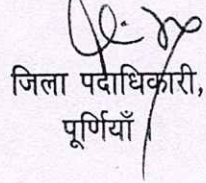 जिला पदाधिकारी,
पूर्णियाँ ।